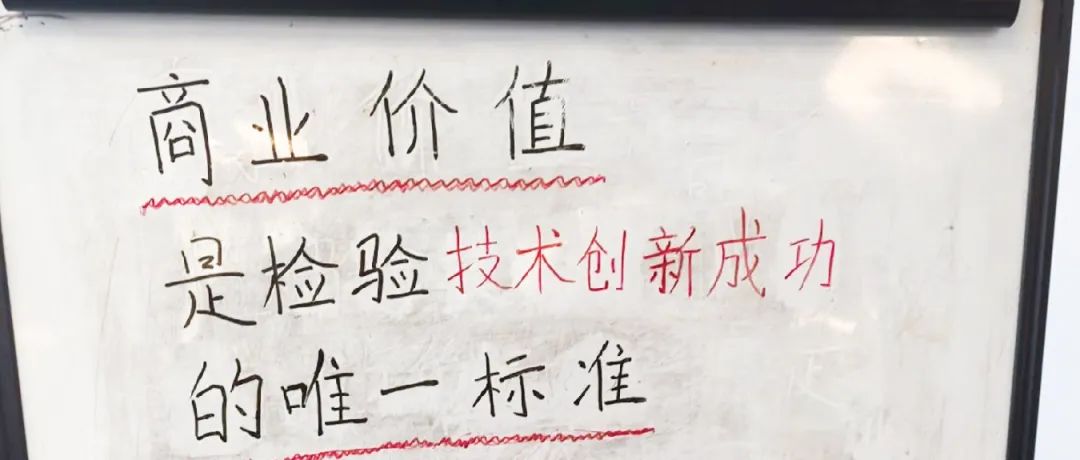 商业价值
是检验技术创新成功
的唯一标准